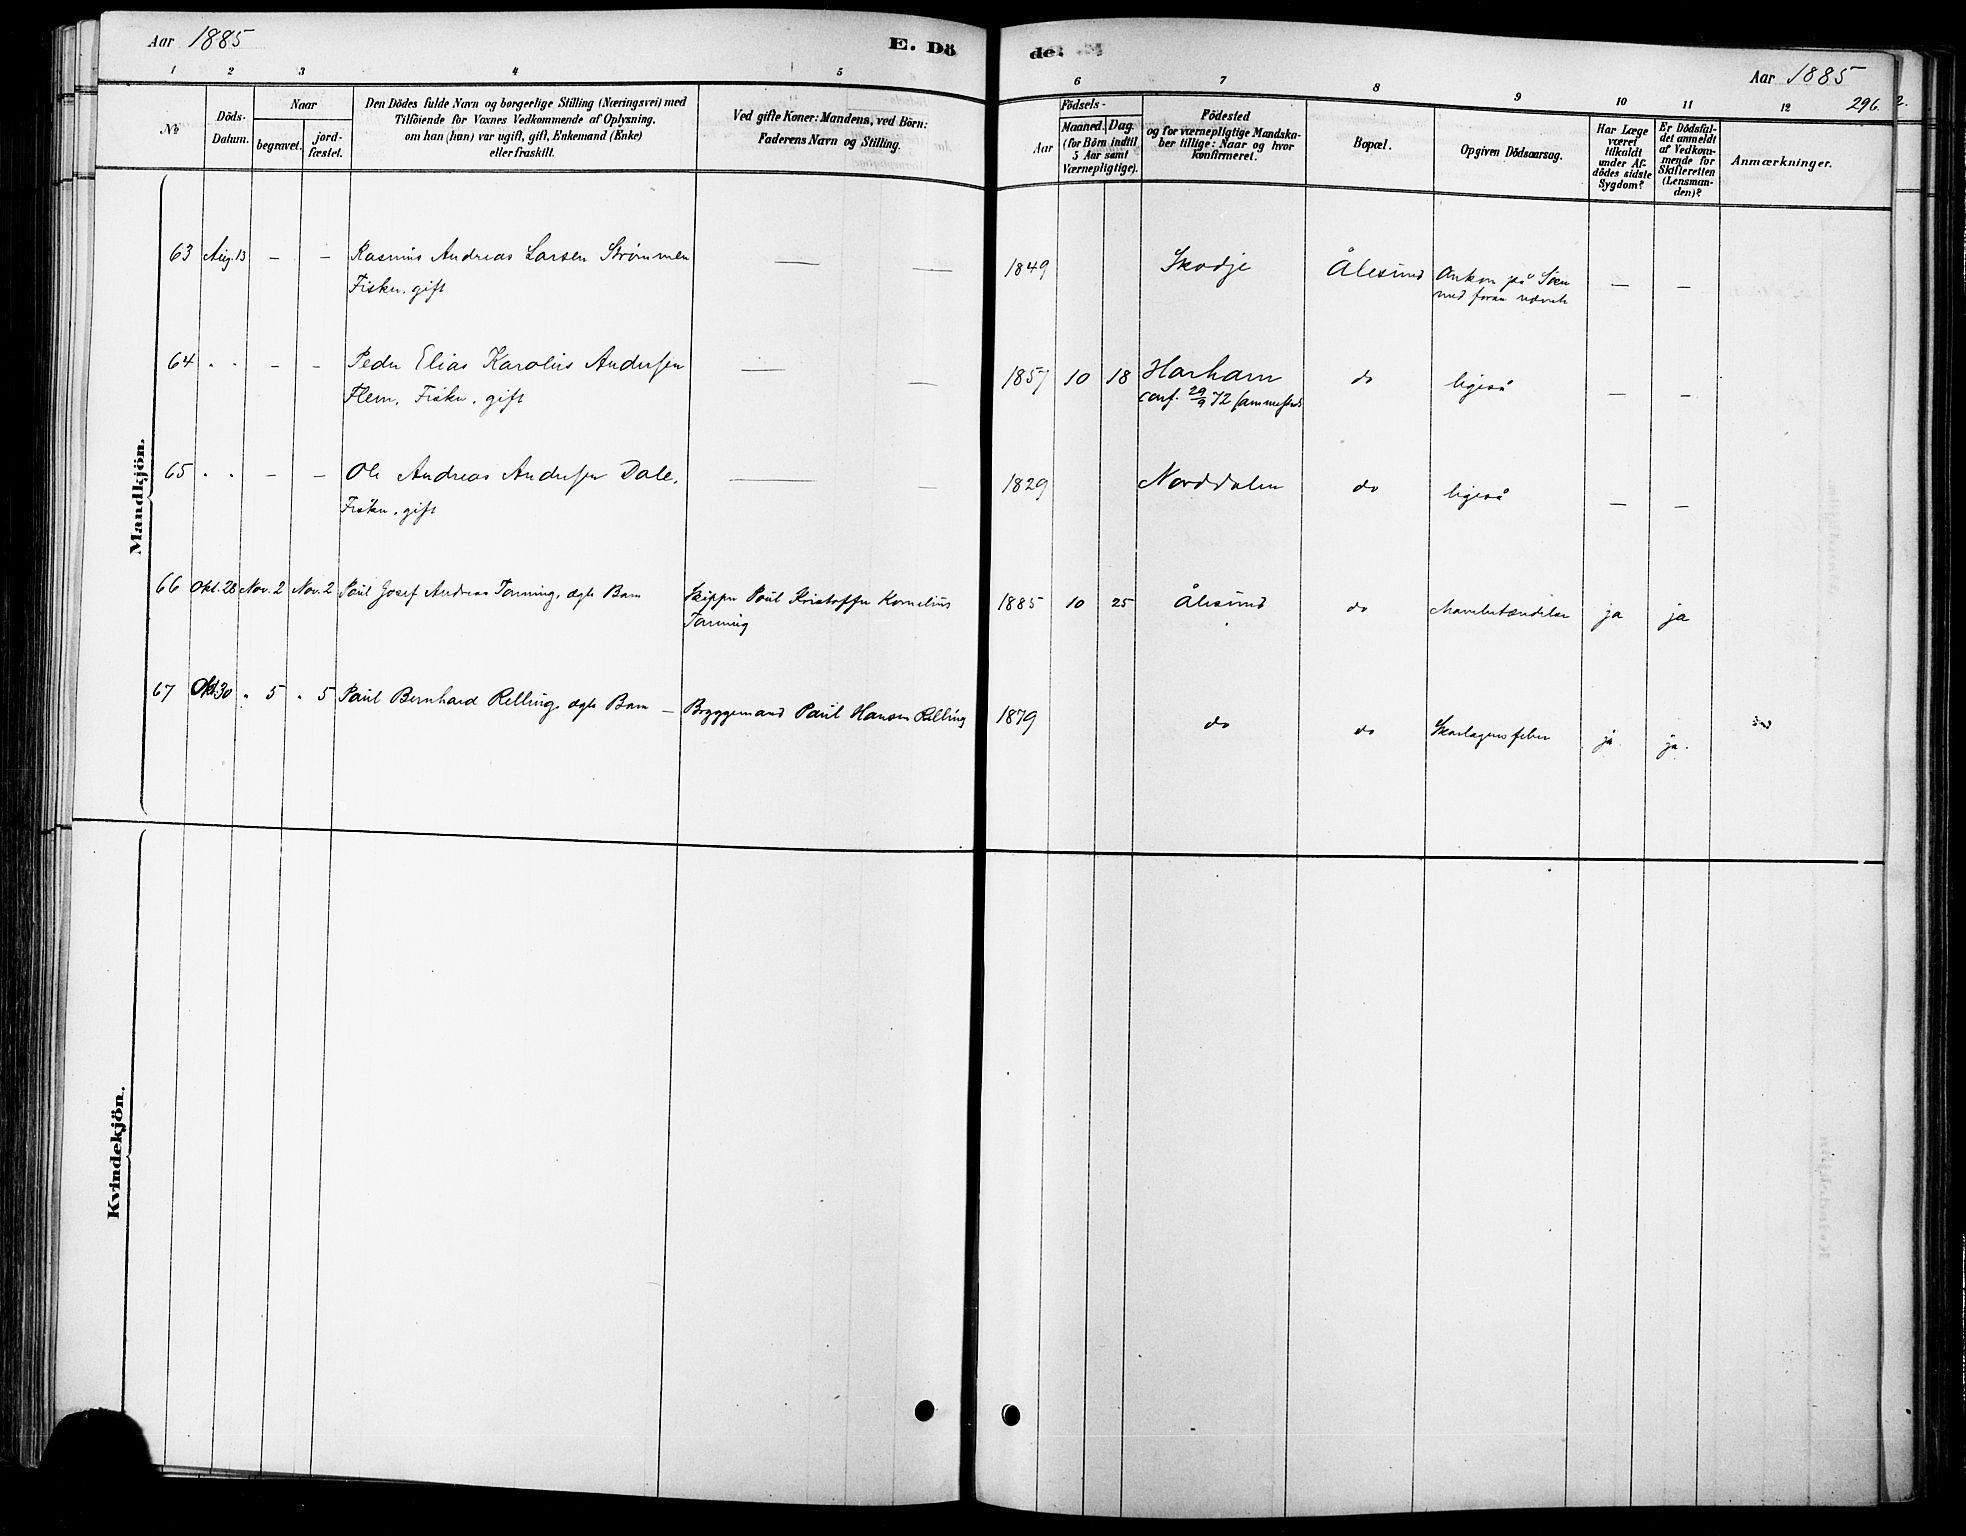 Aar 1885
E. Dö
de.
Aar 1885
296.
1 2 3 4 5 6 7 8 9 10 11 12
No
Döds-
Datum.
Naar
begravet.
jord-
fæstet.
Den Dödes fulde Navn og borgerlige Stilling (Næringsvei) med
Tilföiende for Voxnes Vedkommende af Oplysning,
om han (hun) var ugift, gift, Enkemand (Enke)
eller fraskilt.
Ved gifte Koner: Mandens, ved Börn:
Faderens Navn og Stilling.
Födsels-
Aar
Maaned.
Dag.
(for Börn indtil
5 Aar samt
Værnepligtige).
Födested
og for værnepligtige Mandska-
ber tillige: Naar og hvor
konfirmeret.
Bopæl.
Opgiven Dödsaarsag.
Har Læge
været
tilkaldt
under Af-
dödes sidste
Sygdom?
Er Dödsfal-
det anmeldt
af Vedkom-
mende for
Skifteretten
(Lensman-
den)?
Anmærkninger.
Mandkjön.
63 Aug. 13 — — Rasmus Andreas Larsen Strømmen — — 1849 Skodje Ålesund Omkom på Søen — —
Fisker, gift
64 " " — — Peder Elias Karolius Andersen — — 1857 10 18 Harham do ligeså — —
Flem, Fisker, gift conf. 29/9 72 sammesteds
65 " " — — Ole Andreas Andersen Dale, — — 1829 Norddalen do ligeså — —
Fisker, gift
66 Okt. 28 Nov. 2 Nov. 2 Paul Josef Andreas Tønning, ægte Barn Skipper Paul Kristoffer Kornelius 1885 10 25 Ålesund do Mavebetændelse ja ja
Tønning
67 Okt 30 " 5 " 5 Paul Bernhard Relling, ægte Barn — Bryggemand Paul Hansen Relling 1879 do do Skarlagensfeber ja. ja.
Kvindekjön.